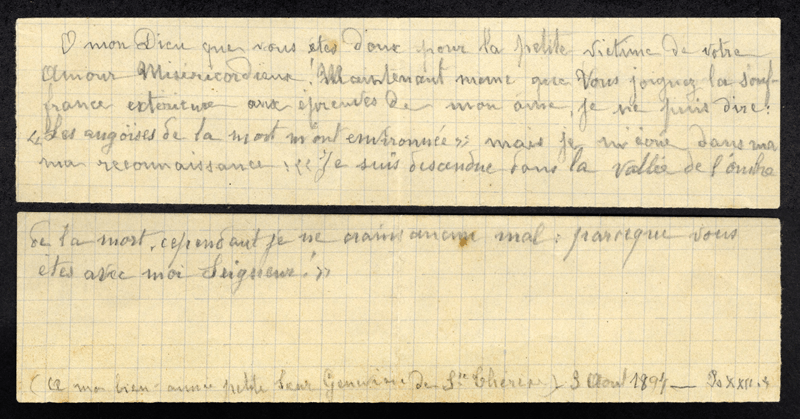 O mon Dieu que vous êtes doux pour la petite victime de votre
Amour Miséricordieux! Maintenant même que Vous joignez la souf-
france extérieure aux épreuves de mon âme, je ne puis dire:
«Les angoises de la mort m'ont environnée» mais je m'écrie dans ma
ma reconnaissance: «Je suis descendue dans la vallée de l'ombre
de la mort, cependant je ne crains aucun mal; parceque vous
êtes avec moi Seigneur!»
(A ma bien-aimée petite Sœur Geneviève de Ste Thérèse) 3 Août 1897 — Ps XXII.4